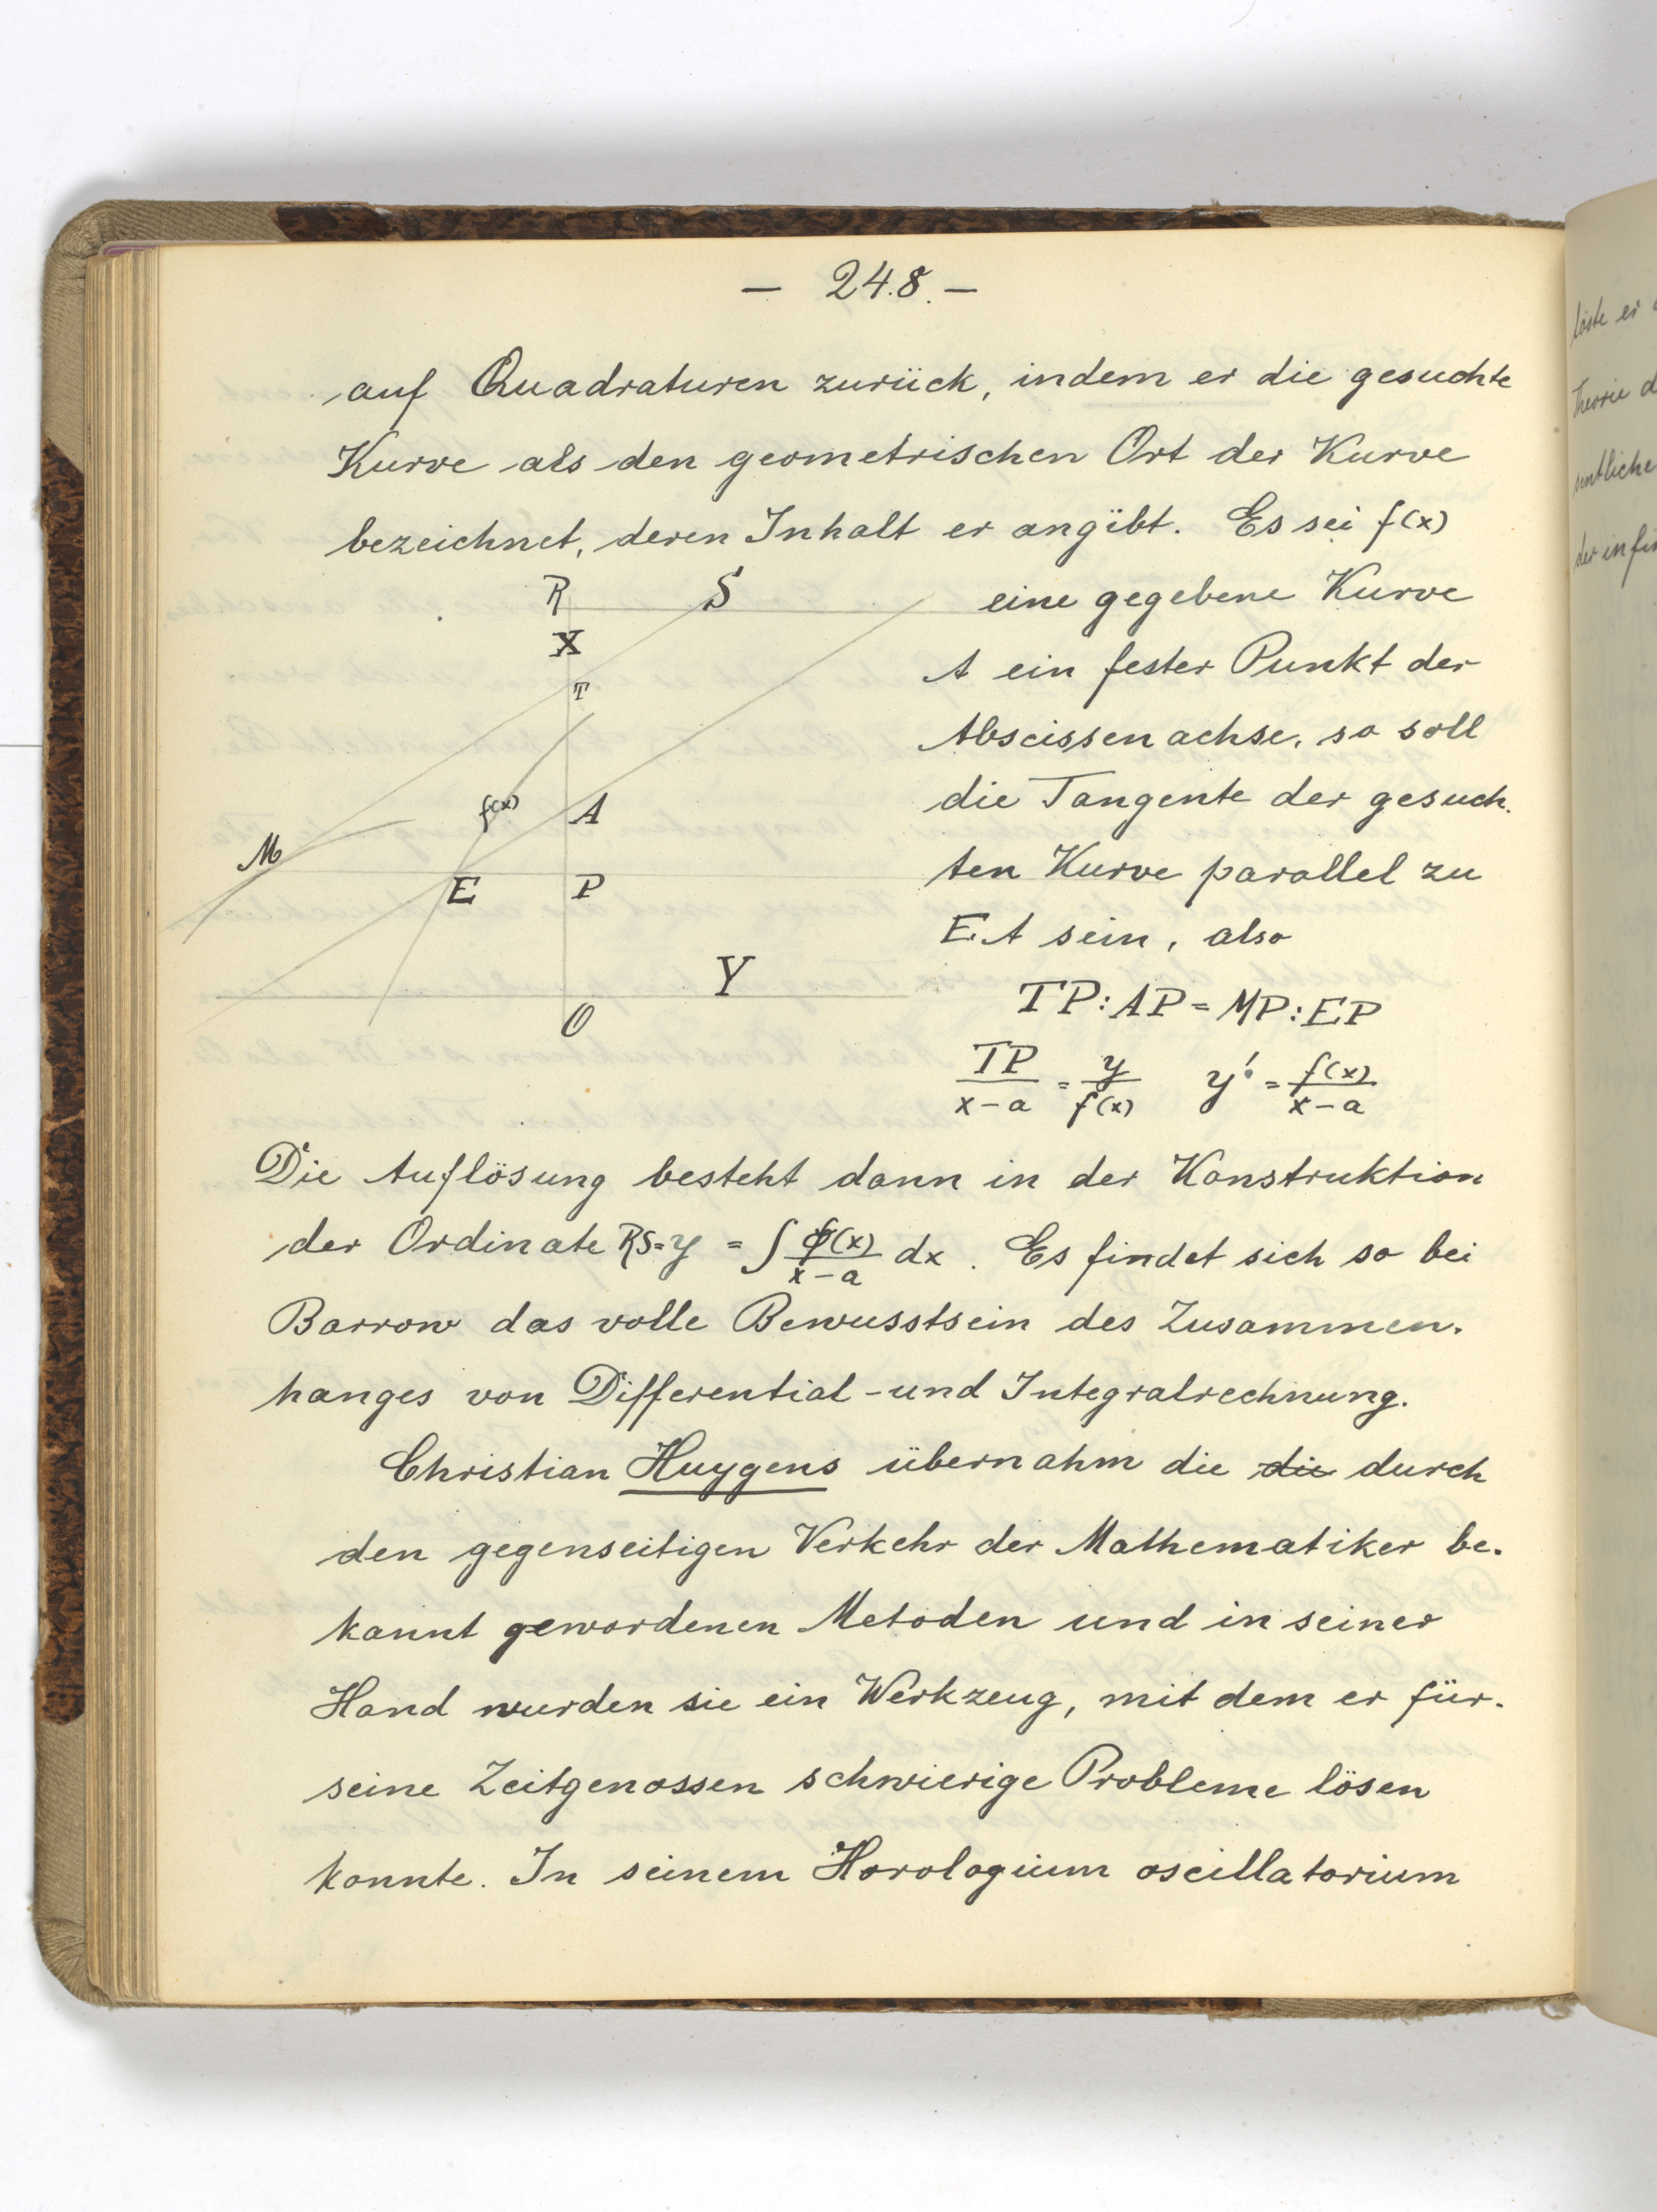 — 248. —
auf Quadraturen zurück, indem er die gesuchte
Kurve als den geometrischen Ort der Kurve
bezeichnet, deren Inhalt er angibt. Es sei f(x)
eine gegebene Kurve
A ein fester Punkt der
Abscissenachse, so soll
die Tangente der gesuch-
ten Kurve parallel zu
EA sein, also
TP:AP = MP:EP
TP/x-a = y/f(x) y' = f(x)/x-a
R S
X
T
f(x) A
M
E P
Y
O
Die Auflösung besteht dann in der Konstruktion
der Ordinate RS=y = ∫ f(x)/x-a dx. Es findet sich so bei
Barrow das volle Bewusstsein des Zusammen-
hanges von Differential-und Integralrechnung.
Christian Huygens übernahm die die durch
den gegenseitigen Verkehr der Mathematiker be-
kannt gewordenen Metoden und in seiner
Hand wurden sie ein Werkzeug, mit dem er für
seine Zeitgenossen schwierige Probleme lösen
konnte. In seinem Horologium oscillatorium
löste er
Theorie d
sentliche
der infin